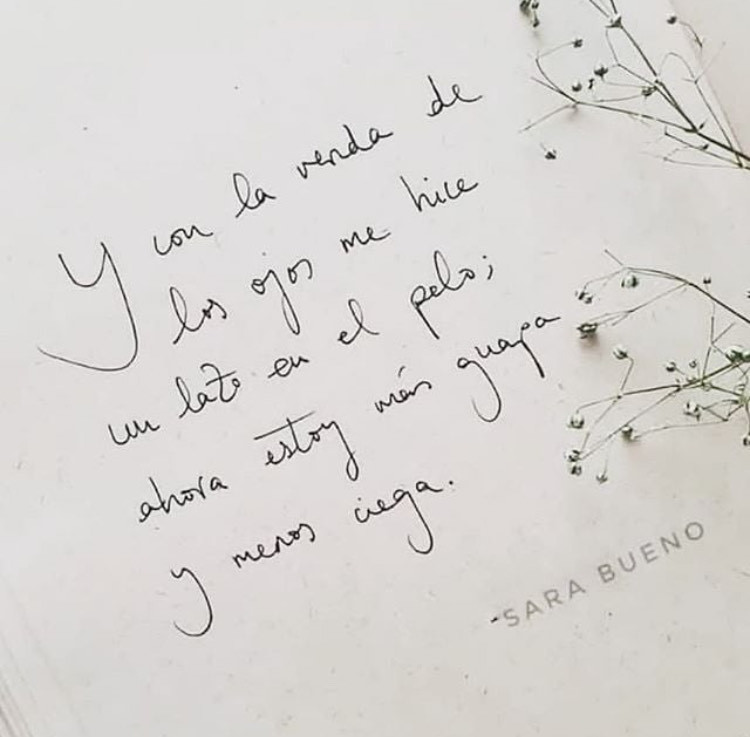 Y con la venda de
los ojos me hice
un lazo en el pelo;
ahora estoy más guapa
y menos ciega.
-SARA BUENO